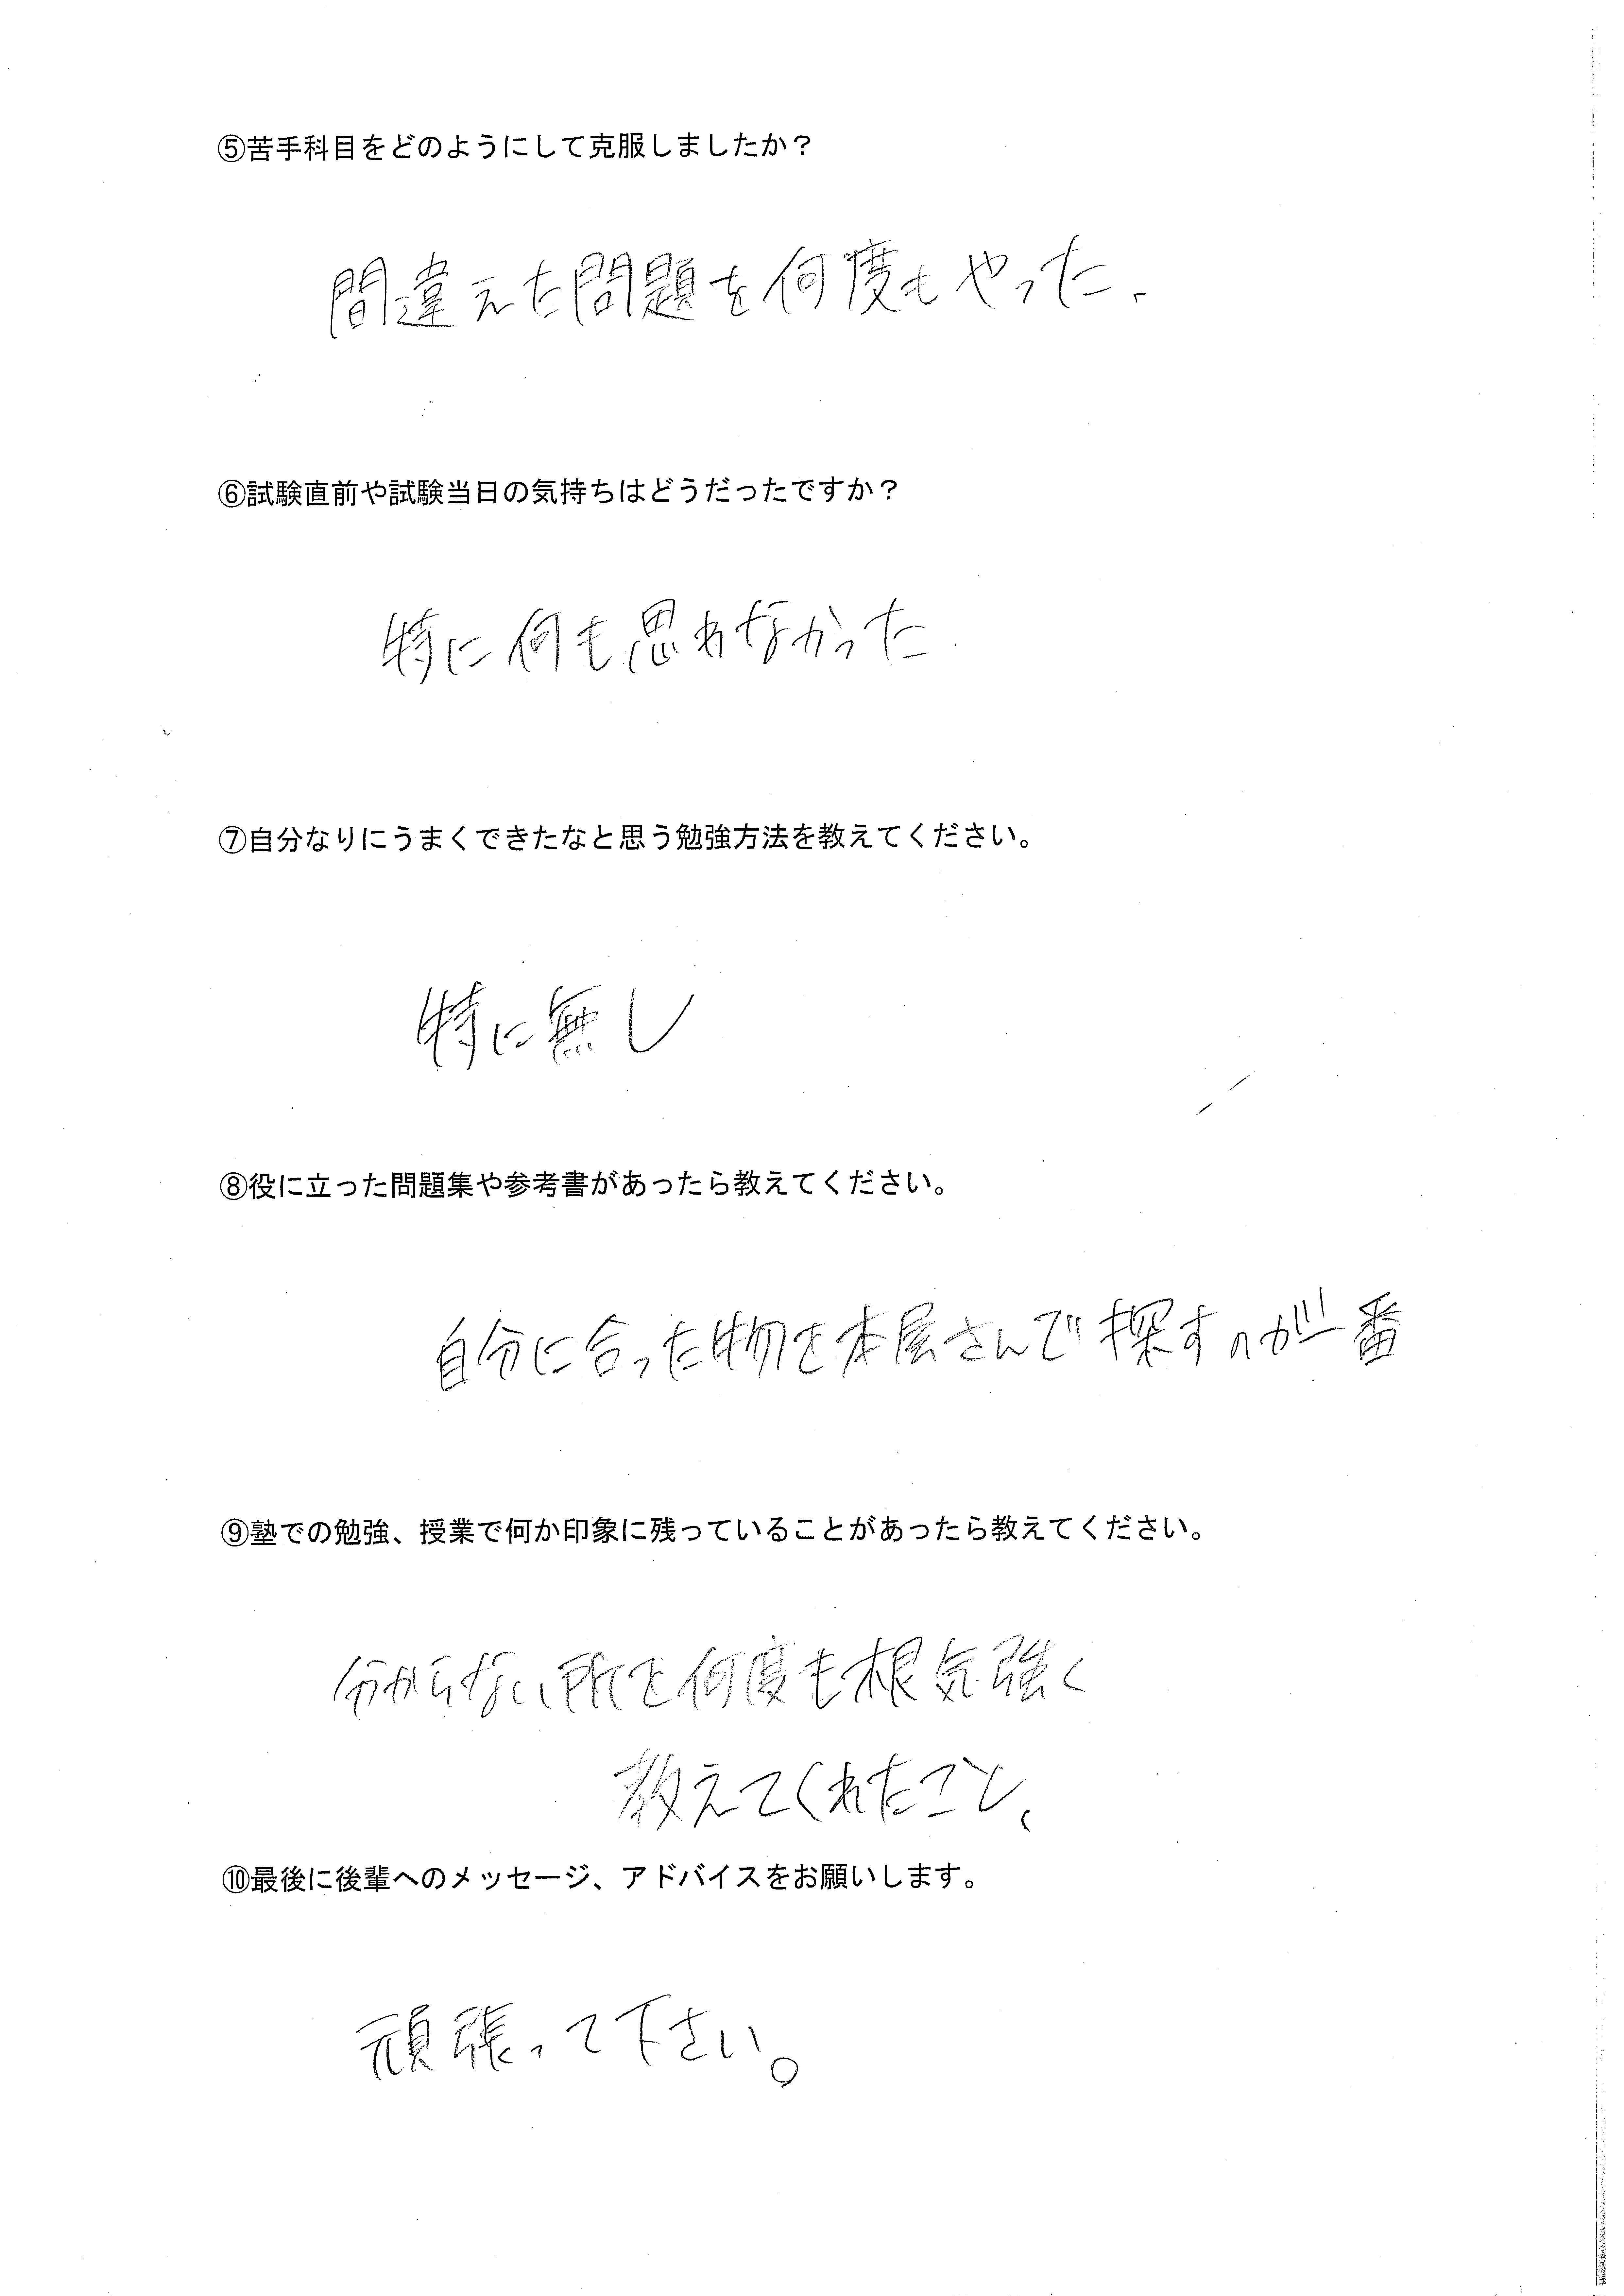 ⑤苦手科目をどのようにして克服しましたか？
間違えた問題を何度もやった.
⑥試験直前や試験当日の気持ちはどうだったですか？
特に何も思わなかった
⑦自分なりにうまくできたなと思う勉強方法を教えてください。
特に無し
⑧役に立った問題集や参考書があったら教えてください。
自分に合った物を本屋さんで探すのが一番
⑨塾での勉強、授業で何か印象に残っていることがあったら教えてください。
分からない所を何度も根気強く
教えてくれたこと、
⑩最後に後輩へのメッセージ、アドバイスをお願いします。
頑張って下さい。